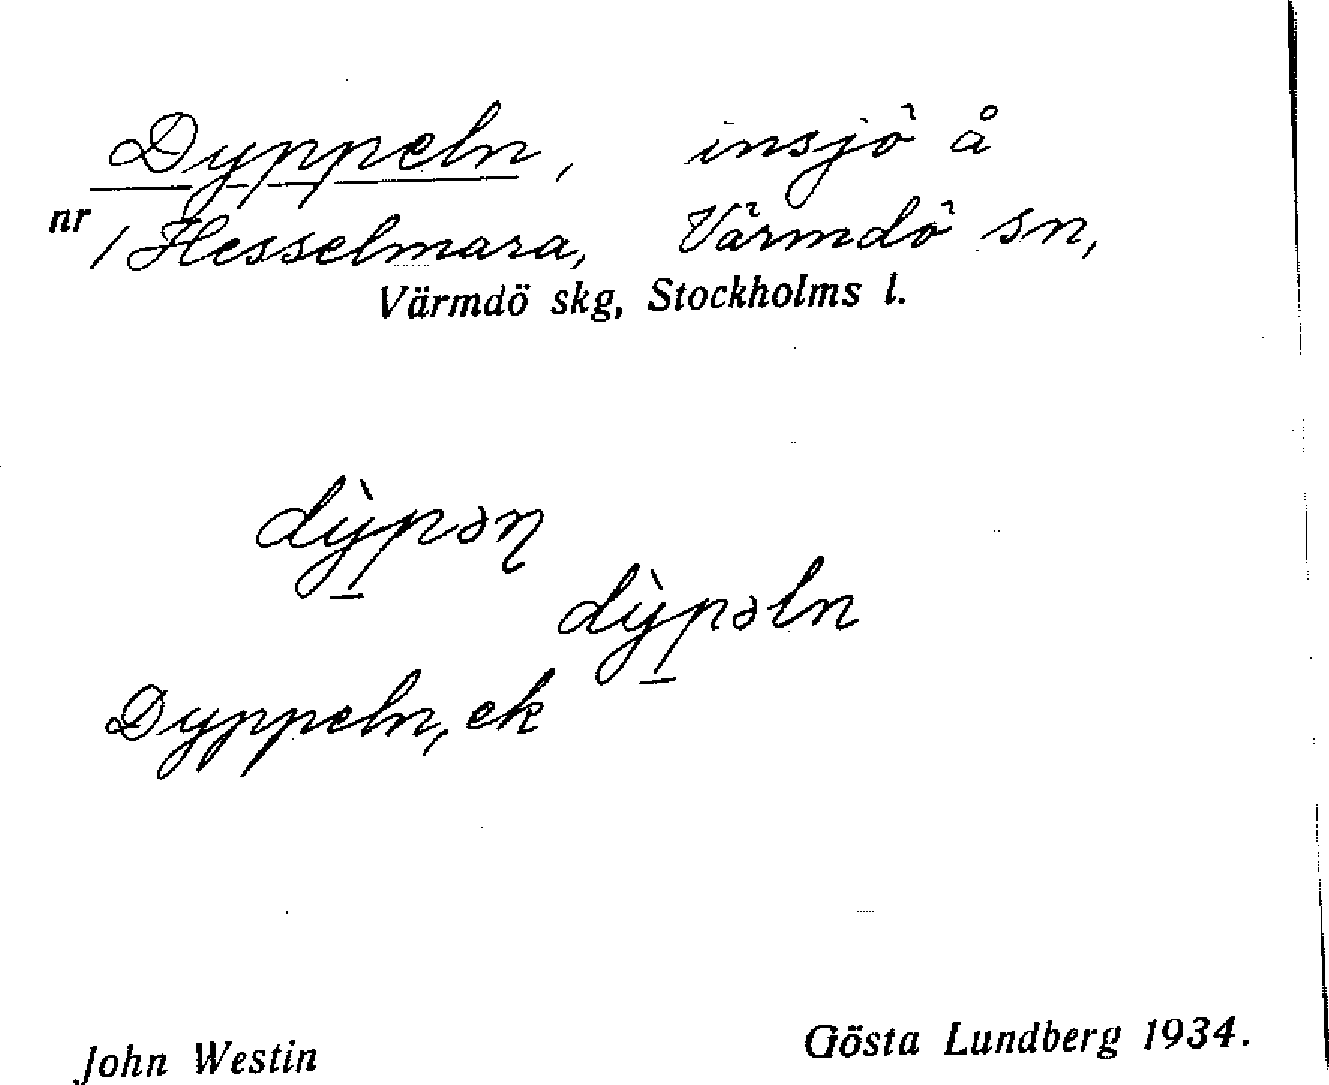 Dyppeln, insjö å
nr 1 Hesselmara, Värmdö sn,
Värmdö skg, Stockholms l.
dỳpəɳ
dỳpəln
Dyppeln, ek
John Westin
Gösta Lundberg 1934.